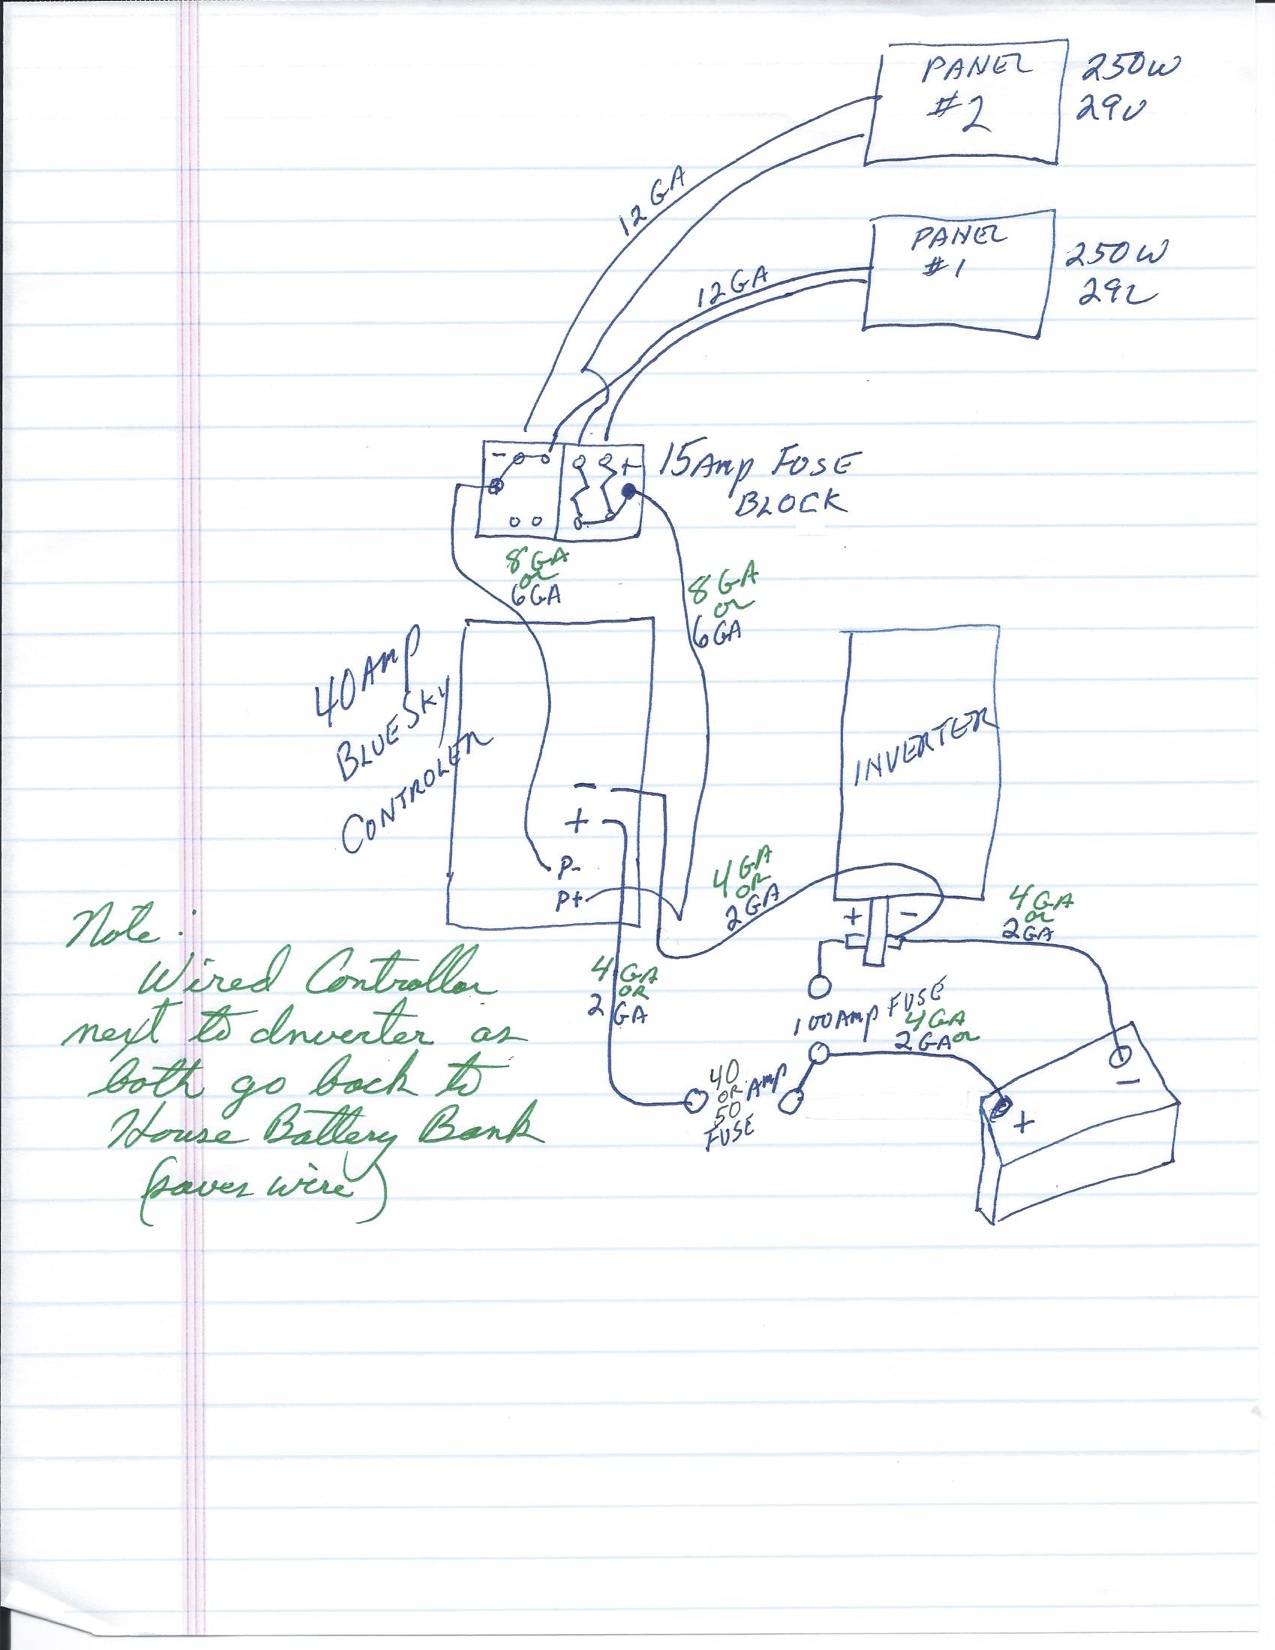 PANEL
#2
250W
29V
12GA
PANEL
#1
250W
29V
12GA
- +
15Amp FUSE
BLOCK
8GA
or
6GA
8GA
or
6GA
40Amp
BLUESKY
CONTROLER
INVERTER
-
+
P-
P+
4GA
OR
2GA
+ -
4GA
or
2GA
4 GA
OR
2 GA
100Amp FUSE
4GA
2GA or
40
OR
50
Amp
FUSE
-
+
Note:
Wired Controller
next to Inverter as
both go back to
House Battery Bank
(saves wire)